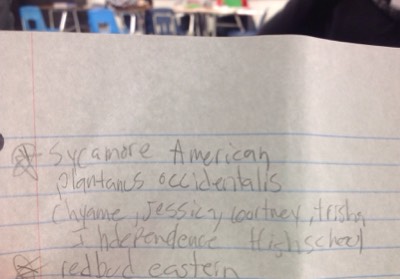 Sycamore American
plantanus occidentalis
Chyame, Jessica, Courtney, trisha
Independence Highschool
redbud eastern